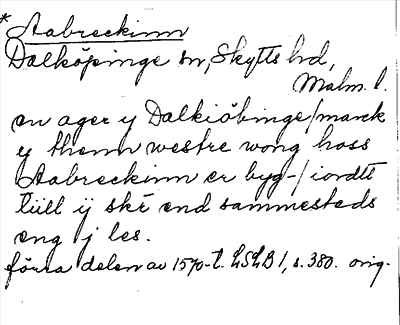 * Aabreckinn
Dalköpinge sn, Skytts hd,
Malm. l.
en ager y Dalkiöbinge/marck
y thenn westre wong hoss
Aabreckinn er byg-/iordtt
tiill ij skr end sammesteds
eng j les.
förra delen av 1570-t. LSLB 1, s. 380. orig.